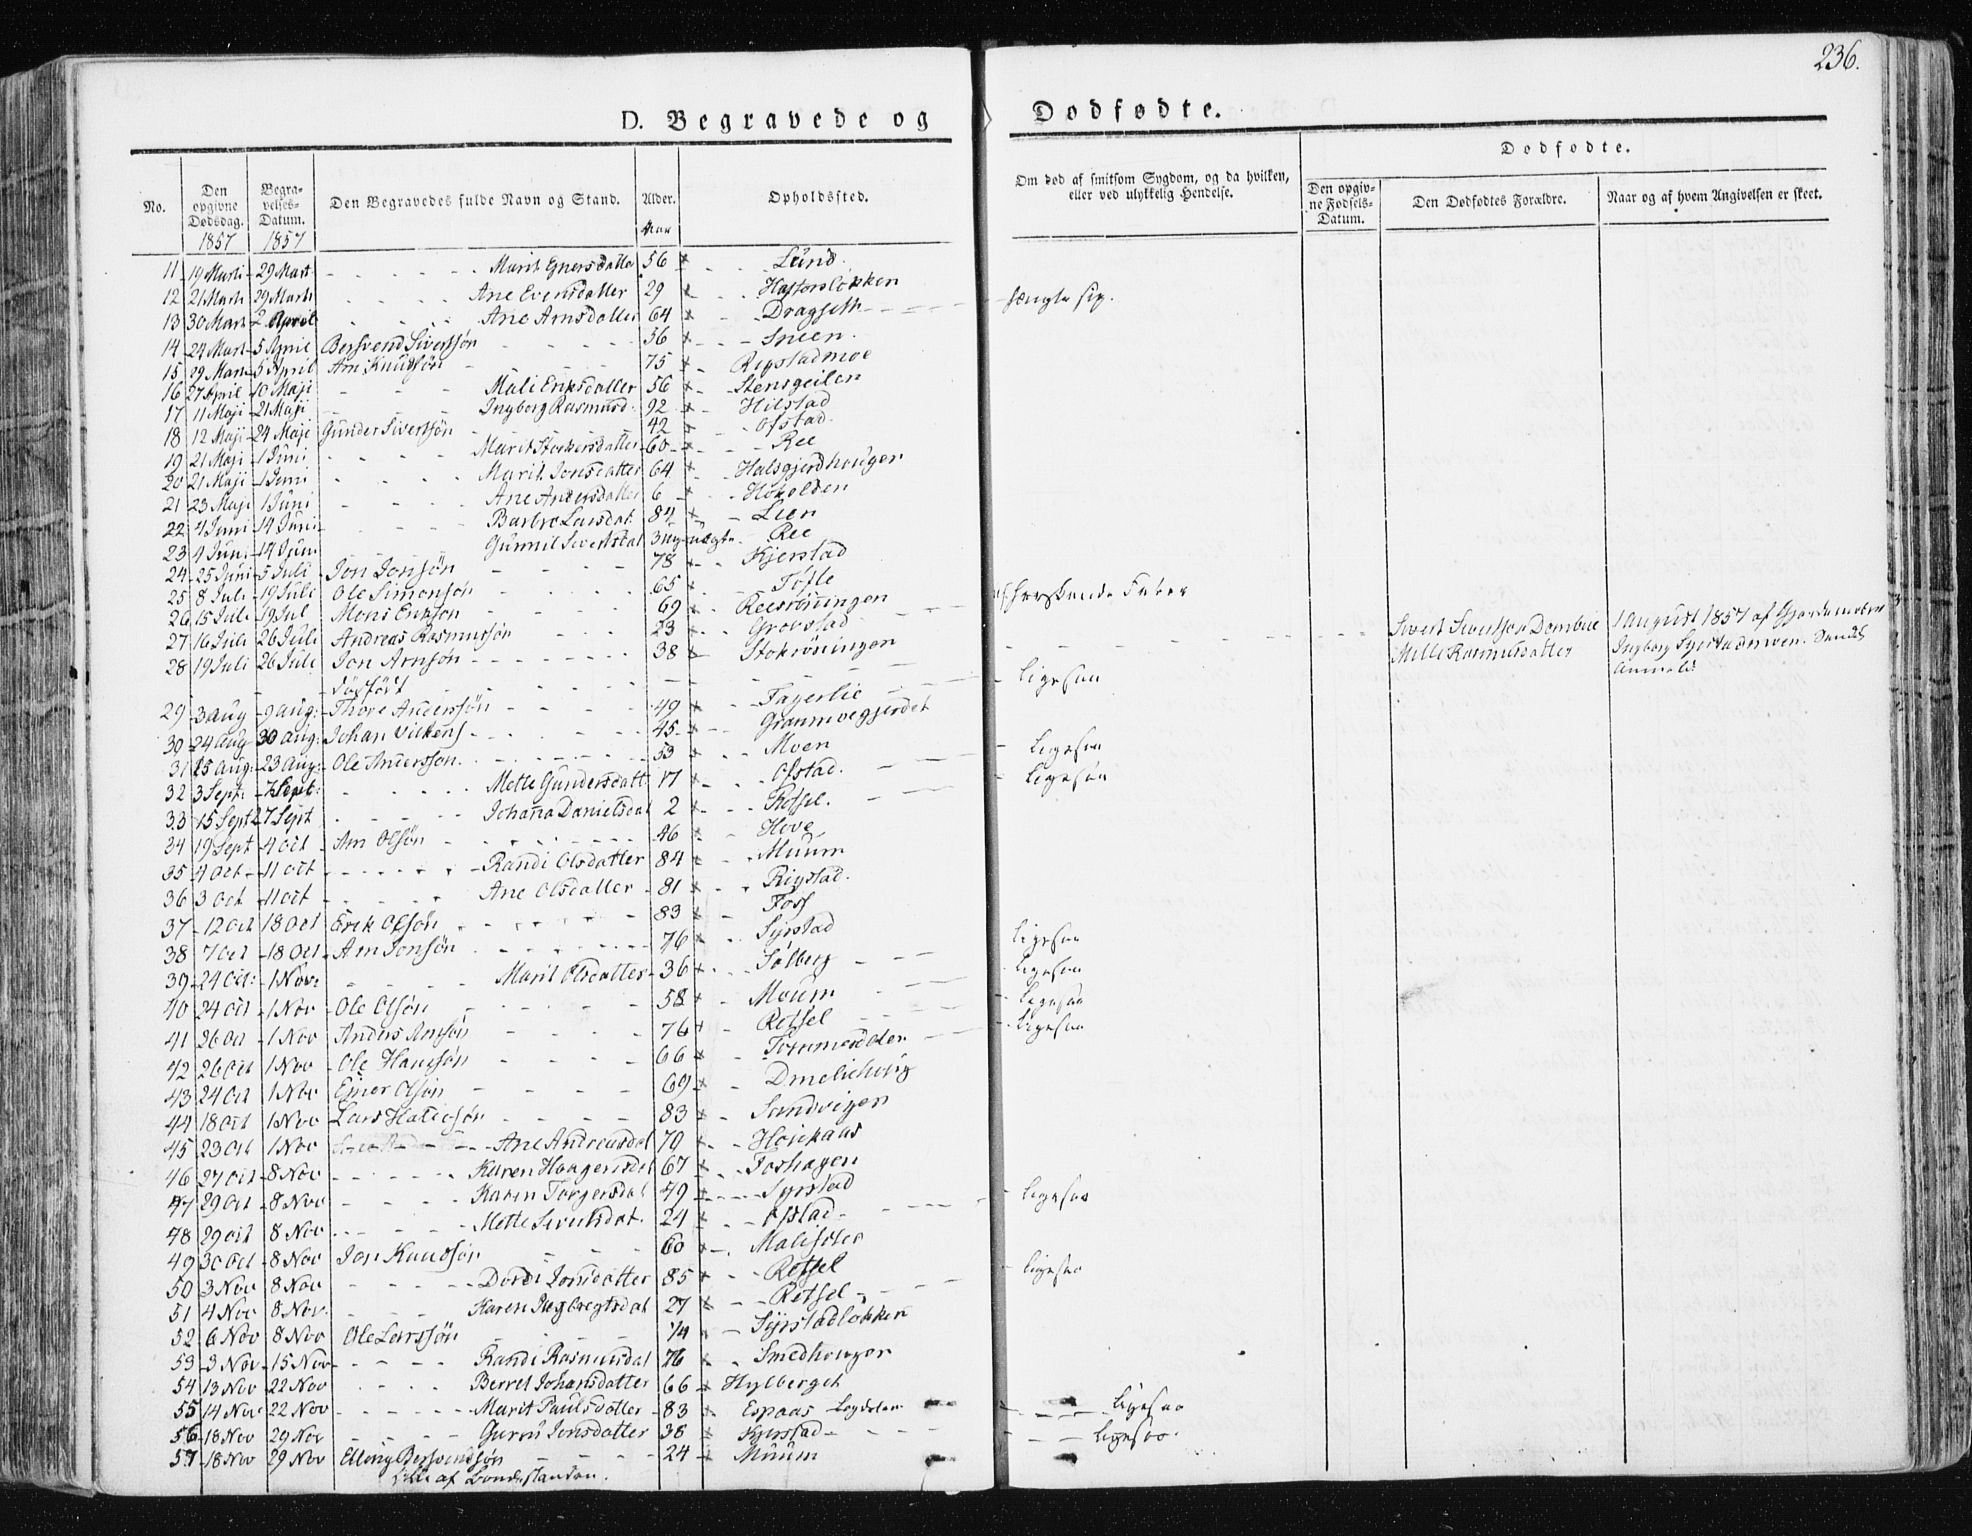 236.
D. Begravede og Dødfødte.
No.
Den opgivne Dødsdag. 1857
Begravelses-Datum. 1857
Den Begravedes fulde Navn og Stand.
Alder. Aar
Opholdssted.
Om død af smitsom Sygdom, og da hvilken, eller ved ulykkelig Hendelse.
Dødfødte.
Den opgivne Fødsels-Datum.
Den Dødfødtes Forældre.
Naar og af hvem Angivelsen er skeet.
11 19 Marti 29 Mart Marit Eynersdatter 56 Lund
12 21 Marti 29 Marti Ane Evensdatter 29
13 30 Mart 2 April Ane Arnsdatter 64 Dragseth hængte sig.
14 24 Mart 5 April Bersvend Sivertsøn 56 Sneen.
15 29 Mart 5 April Arn Knudsøn 75 Rigstadmoe
16 27 April 10 Maji Mali Eriksdatter 56 Stensgeilen
17 11 Maji 21 Maji Ingborg Rasmusd: 92 Hilstad
18 12 Maji 24 Maji Gunder Sivertsøn 42 Ofstad.
19 21 Maji 1 Juni Marit Storkersdatter 60 Ree
20 21 Maji 1 Juni Marit Jonsdatter 64 Halsgjerdhauger
21 23 Maji 1 Juni Ane Andersdatter 6
22 4 Juni 14 Juni Barbro Larsdat. 84 Lien
23 4 Juni 14 Juni Gunnil Sivertsdat 3 Ree
24 25 Juni 5 Juli Jon Jonsøn 78 Kjerstad
25 8 Juli 19 Juli Ole Simonsøn 65 Tofte
26 15 Juli 19 Jul Mons Erikson 69 Reesrøningen af herskende Feber
27 16 Juli 26 Juli Andreas Rasmussøn 23 Grovstad
28 19 Juli 26 Juli Jon Arnsøn 38 Stokrøningen
dødfødt Sivert Sivertsøn 1 August 1857 af
ligesaa
29 3 Aug 9 Aug: Thore Andersøn 49 Fagerlie
30 24 Aug 30 Aug: Johan 45
31 15 Aug: 23 Aug: Ole Anderssøn 53 Moen ligesaa
32 3 Sept: 7 Sept: Mette Gundersdatt: 17 Ofstad. ligesaa
33 15 Sept 27 Sept Johana Danielsdat 2
34 19 Sept 4 Oct Arn Olsøn 46 Hove
35 4 Oct 11 Oct Randi Olsdatter 84 Muum
36 3 Oct 11 Oct Ane Olsdatter 81 Rigstad.
37 12 Oct 18 Oct Erik Olsøn 83 Foss
38 7 Oct 18 Oct Arn Jonsøn 76 Syrstad ligesaa
39 24 Oct: 1 Nov: Marit Olsdatter 36 Solberg ligesaa
40 24 Oct 1 Nov Ole Olsøn 58 Moum ligesaa
41 26 Oct 1 Nov Anders Arnsøn 76 Retsel ligesaa
42 26 Oct 1 Nov Ole Hansøn 66
43 24 Oct 1 Nov Einer Olsøn 69
44 18 Oct 1 Nov Lars 83 Sandvigen
45 23 Oct 1 Nov Ane Andreasdat 70
46 27 Oct 8 Nov Karen Haagensdat 67 Foshagen
47 29 Oct 8 Nov Karen Torgersdat 49 Syrstad ligesaa
48 29 Oct 8 Nov Mette Sivertsdat. 24 Ofstad
49 30 Oct 8 Nov Jon Knudsøn 60
50 3 Nov 8 Nov Dordi Jonsdatter 85 Retsel ligesaa
51 4 Nov 8 Nov: Karen Ingbregtsdat 27 Retsel
52 6 Nov 8 Nov Ole Larssøn 14 Syrstadløkken
53 3 Nov 15 Nov Randi Rasmusdat 76 Smedhauger
54 13 Nov 22 Nov Berret Johansdatter 66 Hylberget
55 14 Nov 22 Nov Marit Paulsdatter 83 Espaas ligesaa
56 18 Nov 29 Nov Gurru Jonsdatter 38 Kjerstad ligesaa.
57 18 Nov 29 Nov Elling Bersvendsøn 24 Muum
alle af Bondestanden.